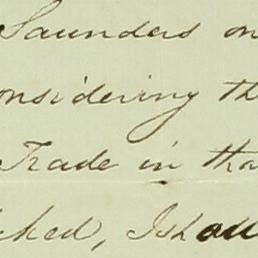 Saunders on
onsidering th
Trade in tha
ked, I shall